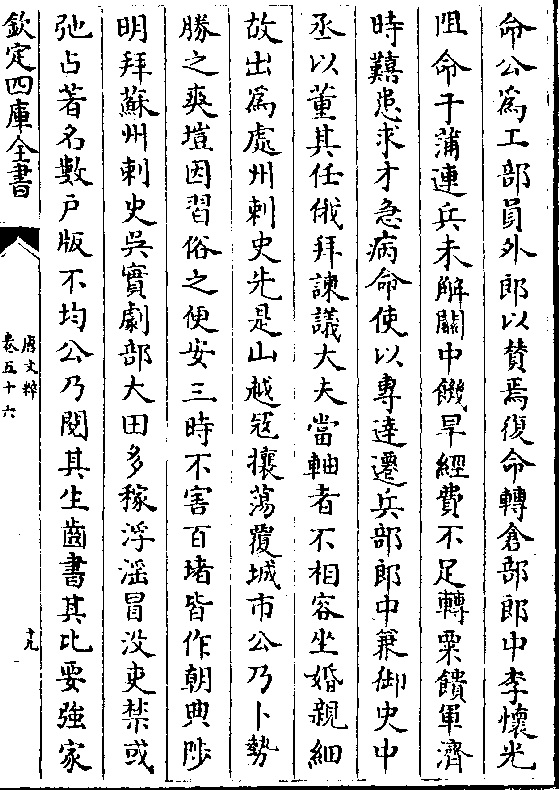 命公為工部員外郎以贊焉復命轉倉部郎中李懷光
阻命于蒲連兵未解關中饑旱經費不足轉粟饋軍濟
時艱患求才急病命使以專達遷兵部郎中兼御史中
丞以董其任俄拜諫議大夫當軸者不相容坐婚親細
故出為處州刺史先是山越宼攘蕩覆城市公乃卜勢
勝之爽塏因習俗之便安三時不害百堵皆作朝典陟
明拜蘇州刺史吳實劇部大田多稼浮滛冒没吏禁或
弛占著名數户版不均公乃閲其生齒書其比要強家
欽定四庫全書
唐文粹
卷五十六
十九